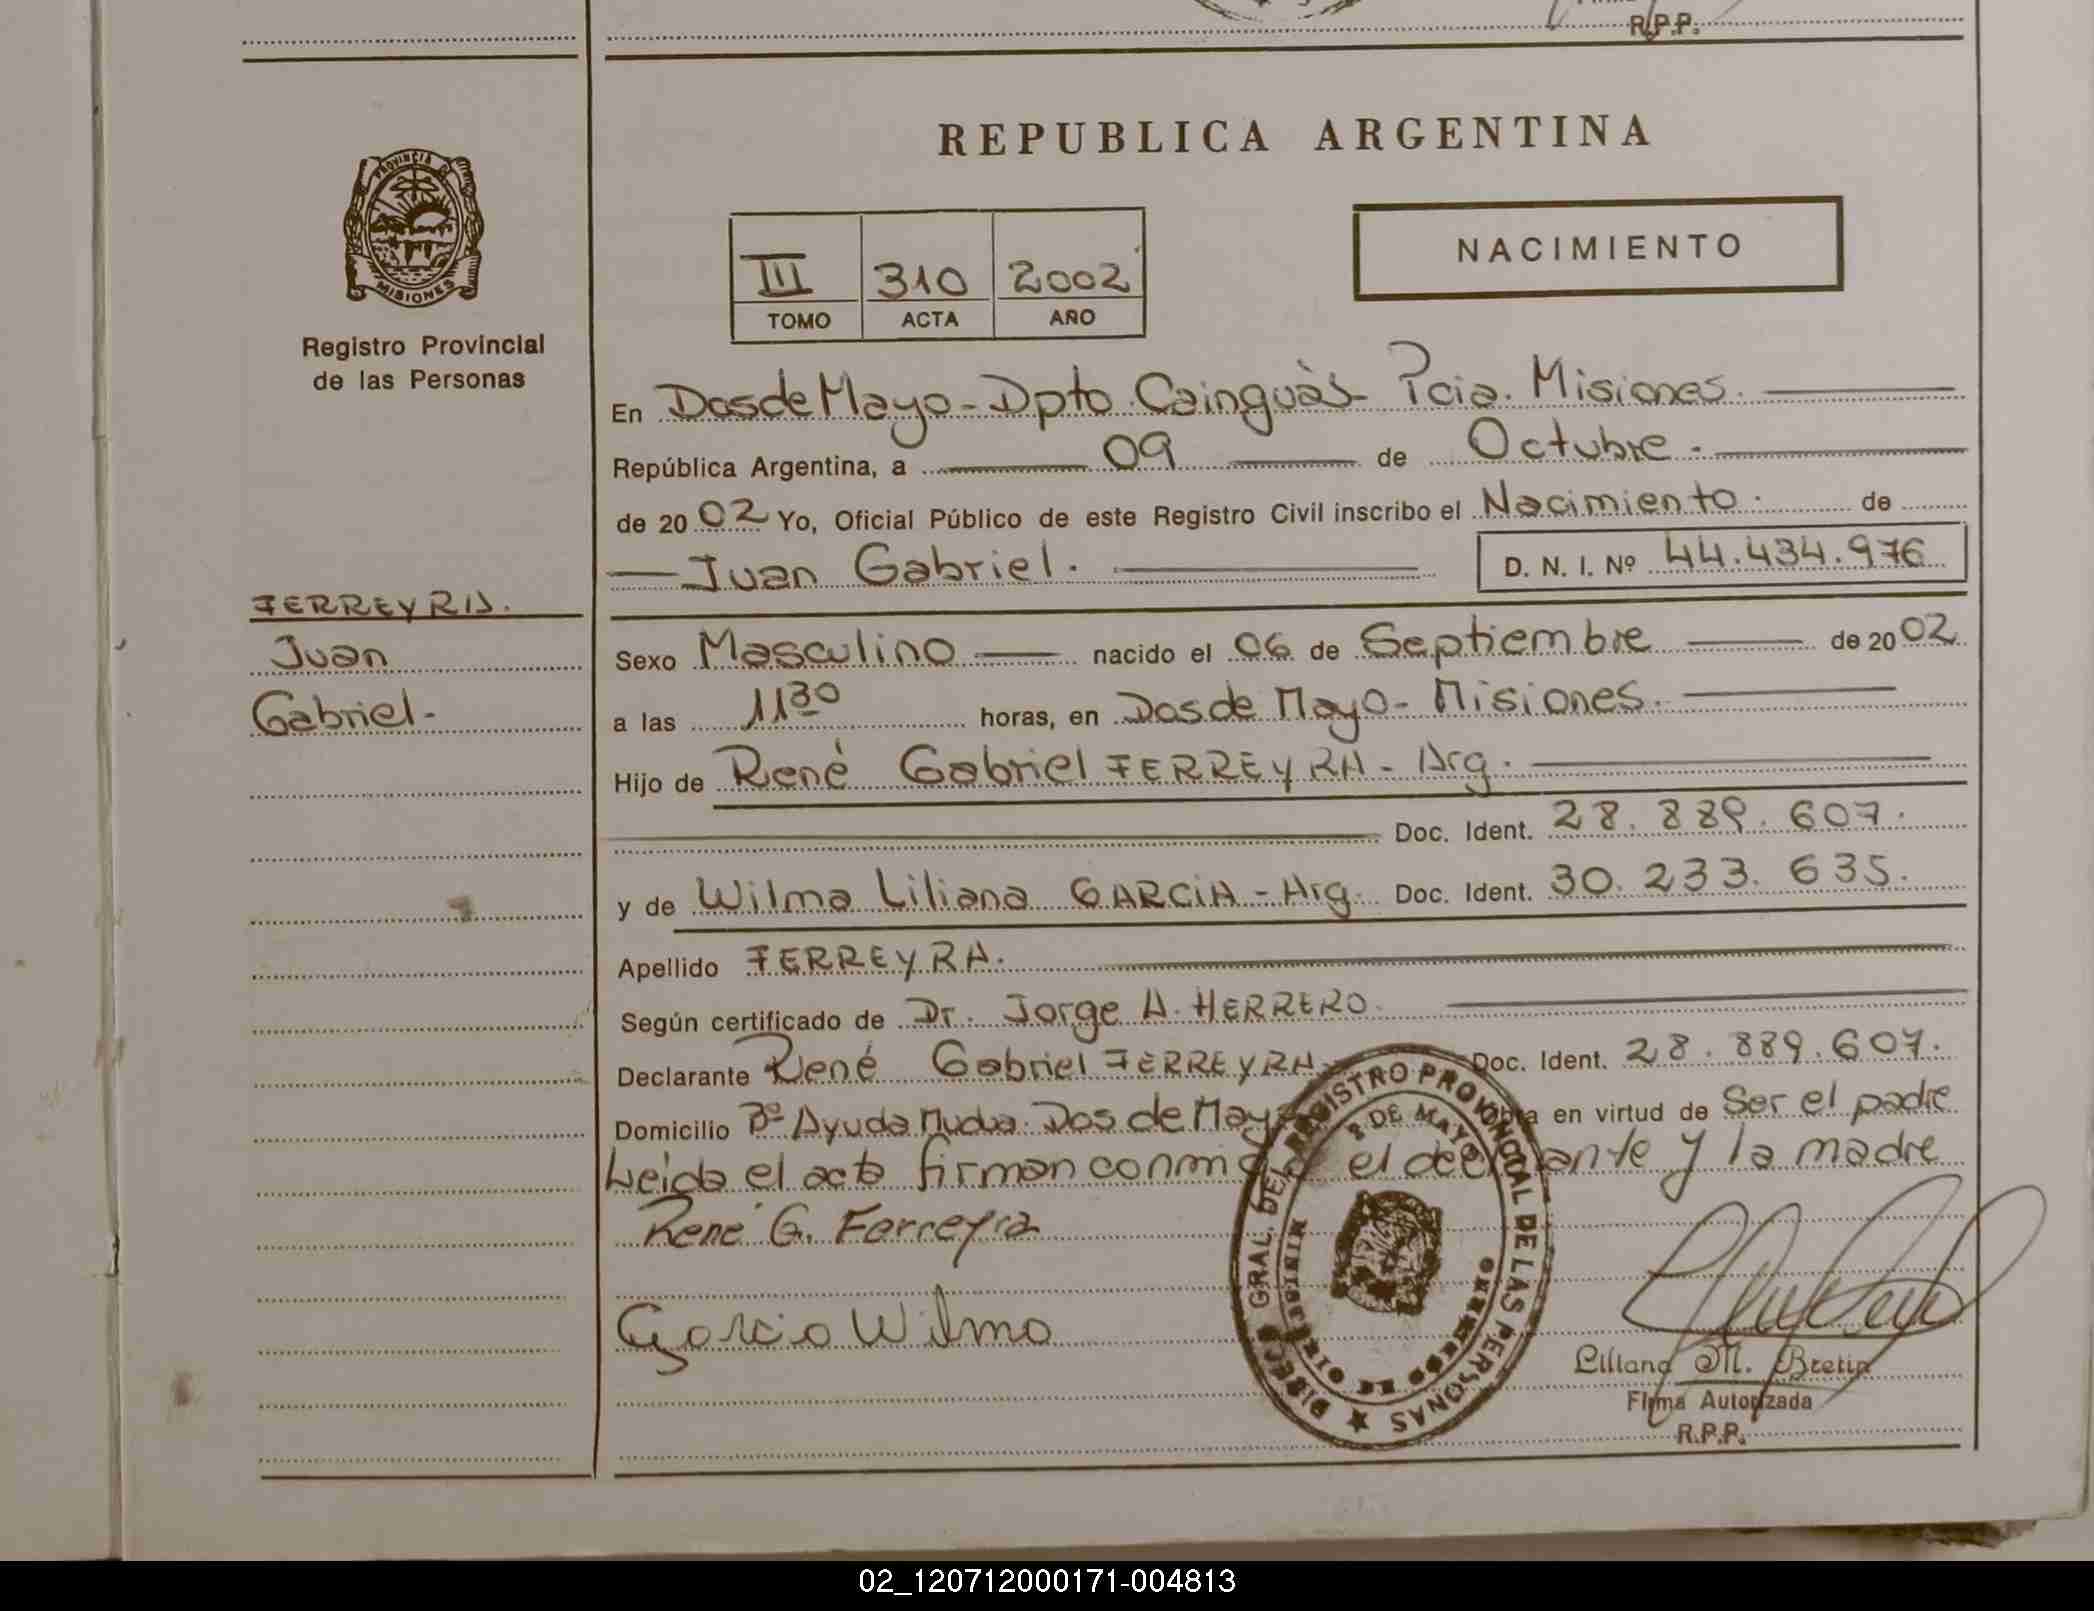 R.P.P.
REPUBLICA ARGENTINA
PROVINCIA
MISIONES
Registro Provincial
de las Personas
NACIMIENTO
III 310 2002
TOMO ACTA AÑO
En Dos de Mayo - Dpto Cainguàs - Pcia. Misiones.
República Argentina, a 09 de Octubre.
de 2002 Yo, Oficial Público de este Registro Civil inscribo el Nacimiento. de
Juan Gabriel. D. N. I. Nº 44.434.976
FERREYRA.
Juan
Gabriel.-
Sexo Masculino nacido el 06 de Septiembre de 2002
a las 11 30 horas, en Dos de Mayo - Misiones.
Hijo de René Gabriel FERREYRA - Arg.
Doc. Ident. 28.889.607.
y de Wilma Liliana GARCIA - Arg. Doc. Ident. 30.233.635.
Apellido FERREYRA.
Según certificado de Dr. Jorge A. HERRERO.
Declarante René Gabriel FERREYRA Doc. Ident. 28.889.607.
Domicilio Bº Ayuda Mutua. Dos de Mayo Obra en virtud de Ser el padre
Leida el acta firman conmigo el declarante y la madre
René G. Ferreyra
Garcia Wilma
DIREC. GRAL. DEL REGISTRO PROVINCIAL DE LAS PERSONAS
2 DE MAYO
Liliana M.
Firma Autorizada
R.P.P.
02_120712000171-004813